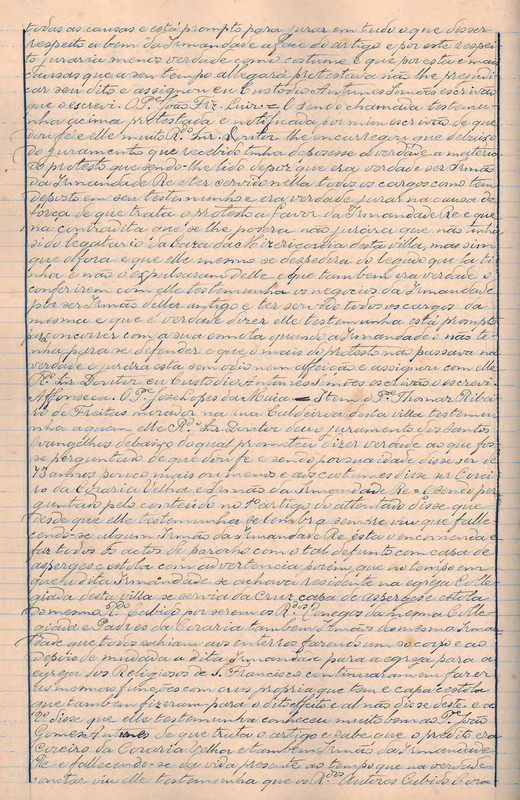 todas as causas e está prompto para jurar em tudo o que disser
respeito a bem da Irmandade a face do artigo e por este respei-
to juraria menos verdade como costume e que por esta e mais
causas que a seu tempo allegará protestava não lhe prejudi-
car seu dito e assignou eu Custodio Antunes Simões escrivão
que escrevi. O Pe. João Luiz = E sendo chamada testemu-
nha acima protestada e notificada por mim escrivão de que
dou fé e elle muito Rdo. Snr. Doutor lhe encarregou que debaixo
do juramento que recebido tinha depozesse a verdade a materia
do protesto que sendo-lhe lido depoz que era verdade ser Irmão
da Irmandade Re e ter servido nella todos os cargos como tem
deposto em seu testemunho e era verdade jurar na causa de
força de que trata o protesto a favor da Irmandade Re e que
na contradita que se lhe pozera não jurára que não tinha
sido legatario da Caza da Mizericordia desta villa, mas sim
que o fora e que elle mesmo se despedira do legado que la ti-
nha e não o expulsaram delle e que tambem era verdade
conferirem com elle testemunha os negocios da Irmandade
por ser Irmão della antigo e ter servido todos os cargos da
mesma e que é verdade dizer elle testemunha está prompto
p. concorrer com a sua esmola quando a Irmandade não te-
nha para se defender e que o mais do protesto não passava na
verdade e jurára esta sem odio nem affeição e assignou com elle
Rdo. Snr. Doutor eu Custodio Antunes Simões escrivão o escrevi.
Affonseca. O Pe. José Lopes da Maia = Item o Pe. Thomaz Ribei-
ro de Freitas morador na rua Caldeirôa desta villa testemu-
nha a quem elle Rdo. Snr. Doutor deu o juramento dos Santos
Evangelhos debaixo do qual prometteu dizer verdade ao que fos-
se perguntado de que dou fe e sendo por sua idade disse ser de
73 annos pouco mais ou menos e aos costumes disse ser Corei-
ro da Coraria Velha e Irmão da Irmandade Re = E sendo per-
guntado pelo conteúdo no 1º artigo do attentado disse que
desde que elle testemunha se lembra sempre viu que falle-
cendo-se algum Irmão da Irmandade Re, esta o encomenda e
faz todos os actos de parocho com o tal defunto com capa de
asperges e estola com advertencia porém que no tempo em
que a dita Irmandade se achava residente na egreja Colle-
giada desta villa se servia da Cruz capa de asperges e estola
do mesmo Rdo. Cabido por serem os Rdos. Conegos da mesma Colle-
giada e Padres da Coraria tambem Irmãos da mesma Irman-
dade que todos sahiam aos enterros fazendo um só corpo e ao
depois de mudada a dita Irmandade para a egreja para a
egreja dos Religiosos de S. Francisco continuaram em fazer
as mesmas funções com cruz propria que tem e capa e estola
que tambem fizeram para o dito effeito e al não disse deste. e ao
2º disse que elle testemunha conheceu muito bem ao Pe. João
Gomes Antunes de que trata o artigo e sabe que o predito era
Coreiro da Coraria Velha e tambem Irmão da Irmandade
Re e fallecendo-se da vida presente ao tempo que na verdade
constar viu elle testemunha que os Rdos. Autores Cabido Cora-